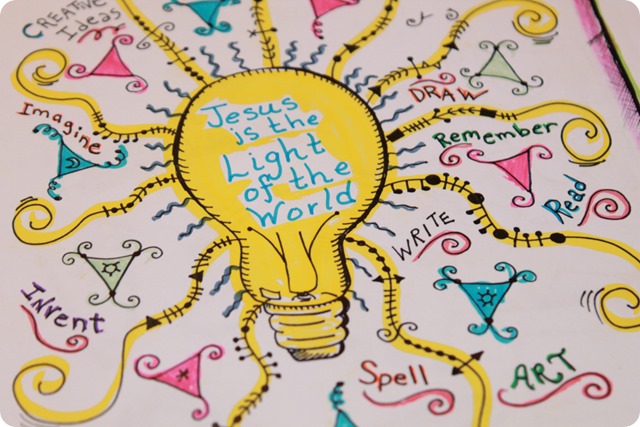 CREATIVE
Ideas
DRAW
Imagine
Jesus
is the
Light
of the
World
Remember
Read
WRITE
INvent
Spell
ART